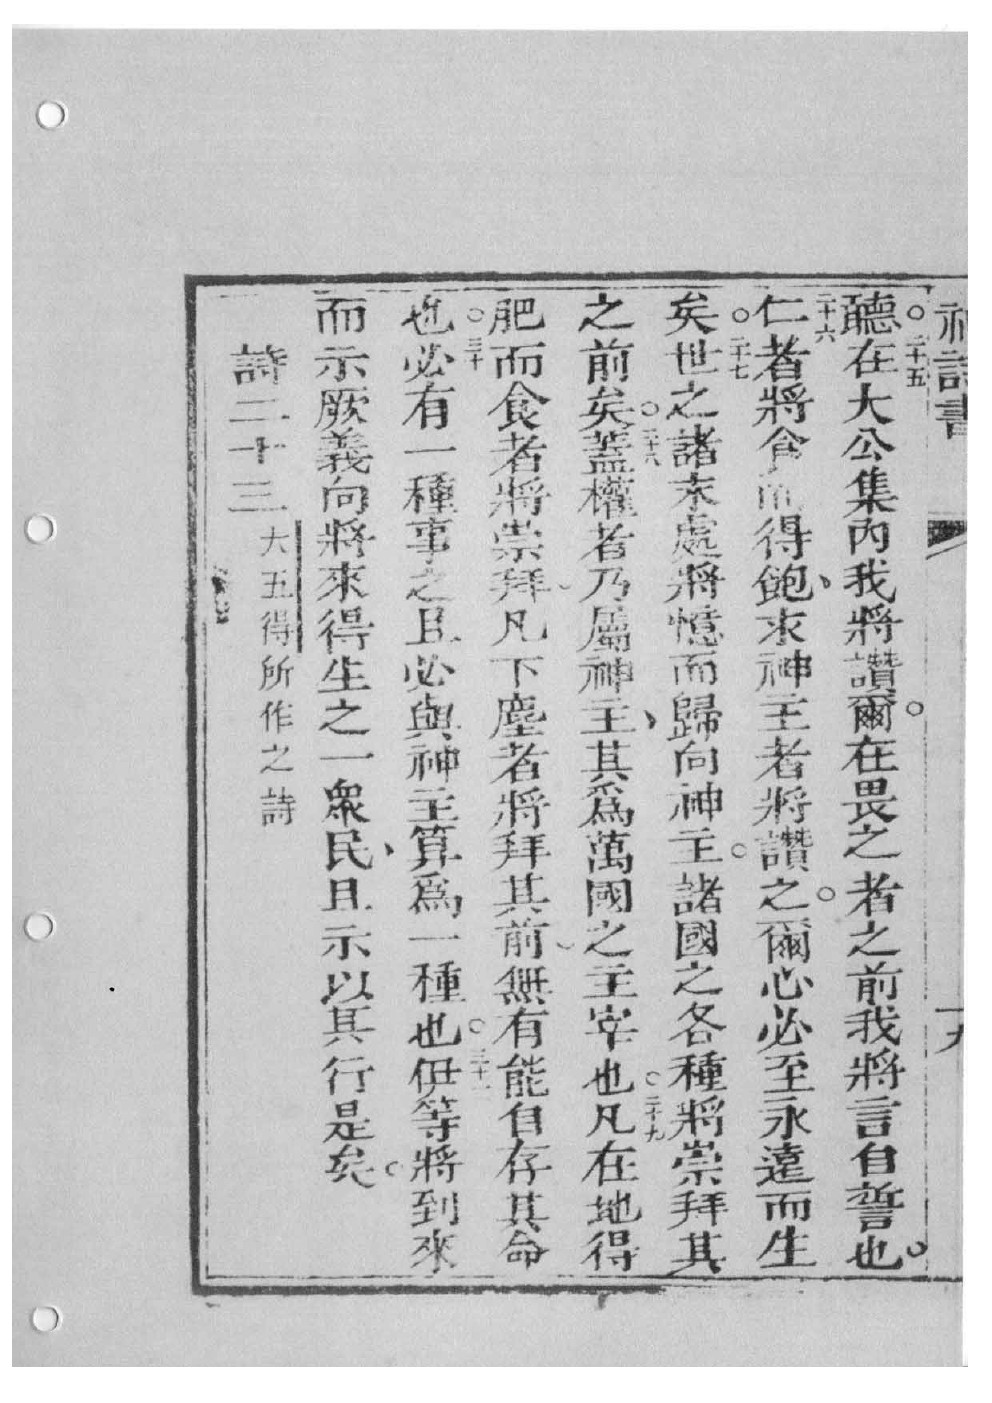 神詩書
十九
二十五
聽在大公集內我將讚爾在畏之者之前我將言自誓也
二十六
仁者將食而得飽求神主者將讚之爾心必至永遠而生
二十七
矣世之諸末處將憶而歸向神主諸國之各種將崇拜其
二十八
之前矣蓋權者乃屬神主其爲萬國之主宰也凡在地得
二十九
肥而食者將崇拜凡下塵者將拜其前無有能自存其命
三十
也必有一種事之且必與神主算爲一種也伊等將到來
三十一
而示厥義向將來得生之一衆民且示以其行是矣
詩二十三
大五得所作之詩